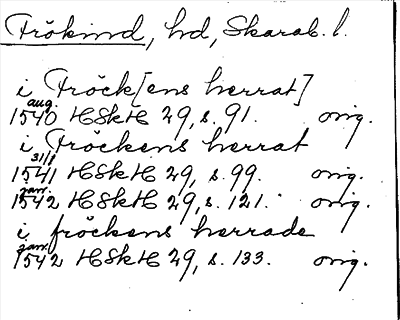 Frökind, hd, Skarab. l.
i Fröck[ens herrat]
aug. 1540 HSkH 29, s. 91. orig.
i Fröckens herrat
31/1 1541 HSkH 29, s. 99. orig.
jan. 1542 HSkH 29, s. 121. orig.
i fröckens herrade
jan. 1542 HSkH 29, s. 133. orig.